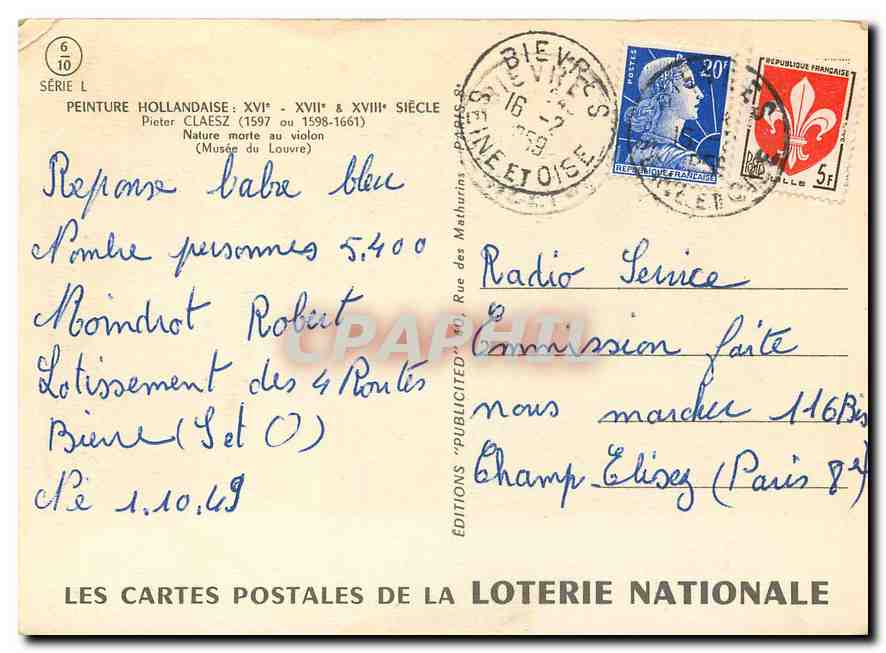 6
10
SÉRIE L
PEINTURE HOLLANDAISE : XVIe - XVIIe & XVIIIe SIÈCLE
Pieter CLAESZ (1597 ou 1598-1661)
Nature morte au violon
(Musée du Louvre)
Reponse l'abre bleu
Nombre personnes 5.400
Moindrot Robert
Lotissement des 4 Routes
Bievre (S et O)
Né 1.10.49
ÉDITIONS "PUBLICITED" 40, Rue des Mathurins - PARIS 8e
BIEVRES
16 -2
1959
SEINE ET OISE
POSTES
20F
REPUBLIQUE FRANÇAISE
REPUBLIQUE FRANÇAISE
LILLE
5F
Radio Service
Emission faite
nous marcher 116 Bis
Champ-Elisez (Paris 8e)
CPAPHIL
LES CARTES POSTALES DE LA LOTERIE NATIONALE